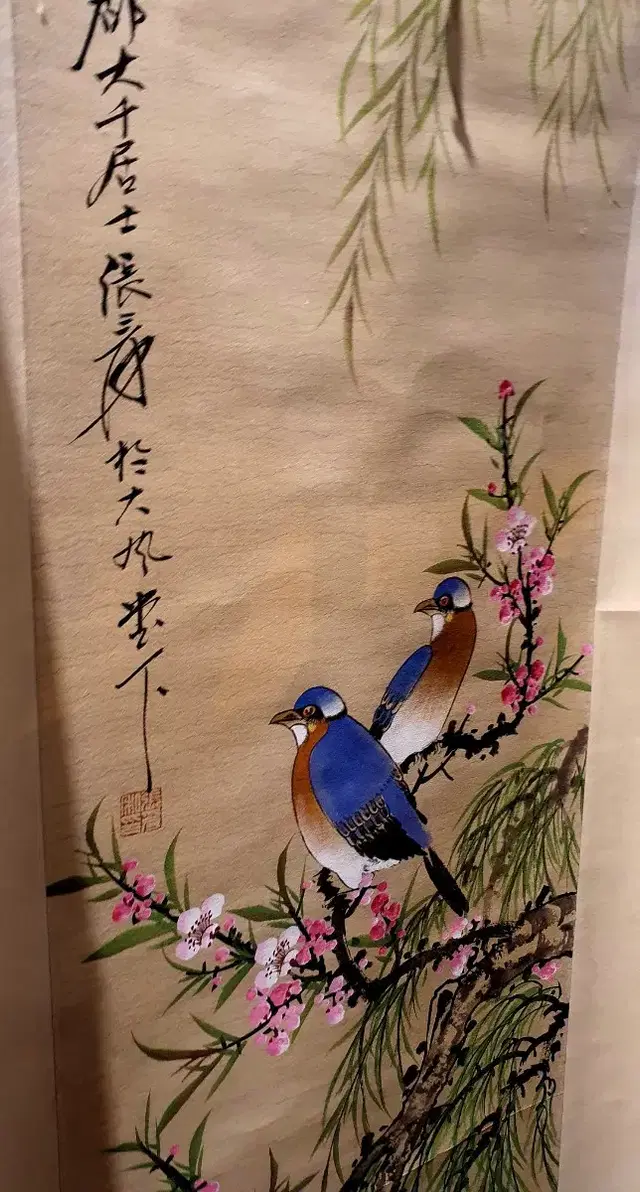 大千居士張爰於大風堂下